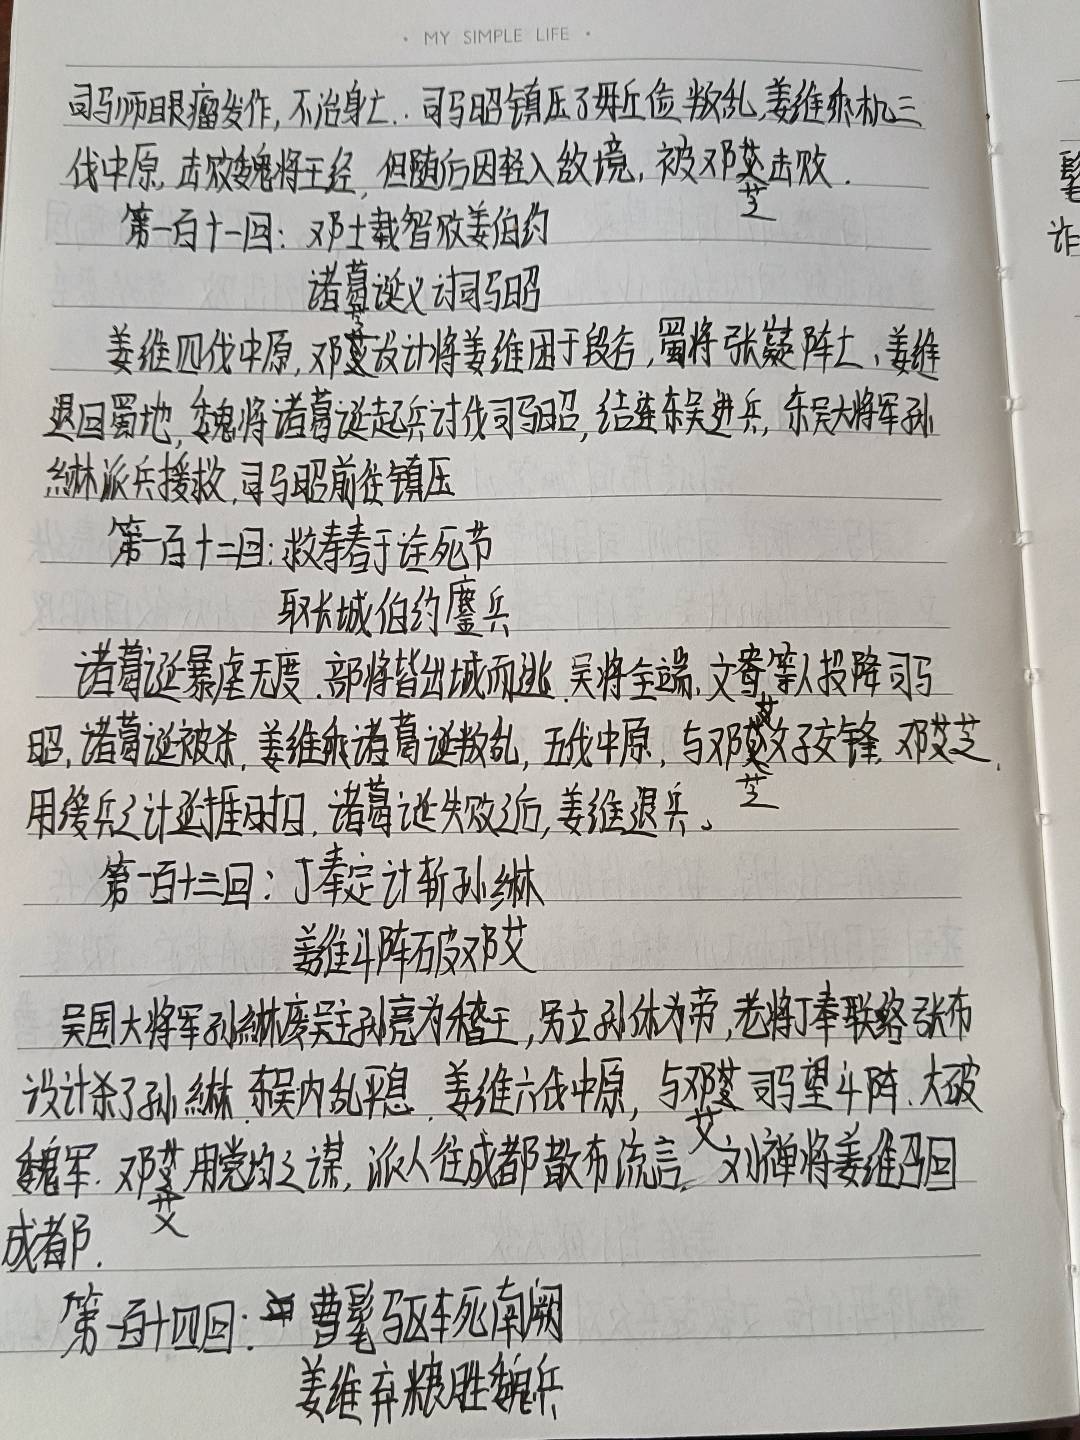 · MY SIMPLE LIFE ·
司马师眼瘤发作，不治身亡．．司马昭镇压了毋丘俭叛乱，姜维乘机三
伐中原，击败魏将王经，但随后因轻入敌境，被邓艾击败．
芝
第一百十一回：邓士载智败姜伯约
诸葛诞义讨司马昭
姜维四伐中原，邓艾设计将姜维困于段谷，蜀将张嶷阵亡、姜维
退回蜀地，魏将诸葛诞起兵讨伐司马昭，结连东吴进兵，东吴大将军孙
綝派兵援救，司马昭前往镇压
第一百十二回：救寿春于诠死节
取长城伯约鏖兵
诸葛诞暴虐无度．部将皆出城而逃．吴将全端、文鸯等人投降司马
昭，诸葛诞被杀，姜维乘诸葛诞叛乱，五伐中原，与邓艾父子交锋．邓艾芝
芝
用缓兵之计延捱时日，诸葛诞失败之后，姜维退兵。
第一百十三回：丁奉定计斩孙綝
姜维斗阵破邓艾
吴国大将军孙綝废吴主孙亮为稽王，另立孙休为帝，老将丁奉联络张布
设计杀了孙綝．东吴内乱平息．姜维六伐中原，与邓艾司马望斗阵．大破
艾
魏军．邓艾用党均之谋，派人往成都散布流言．刘禅将姜维召回
艾
成都．
第一百十四回：曹髦驱车死南阙
姜维弃粮胜魏兵
髦
诈